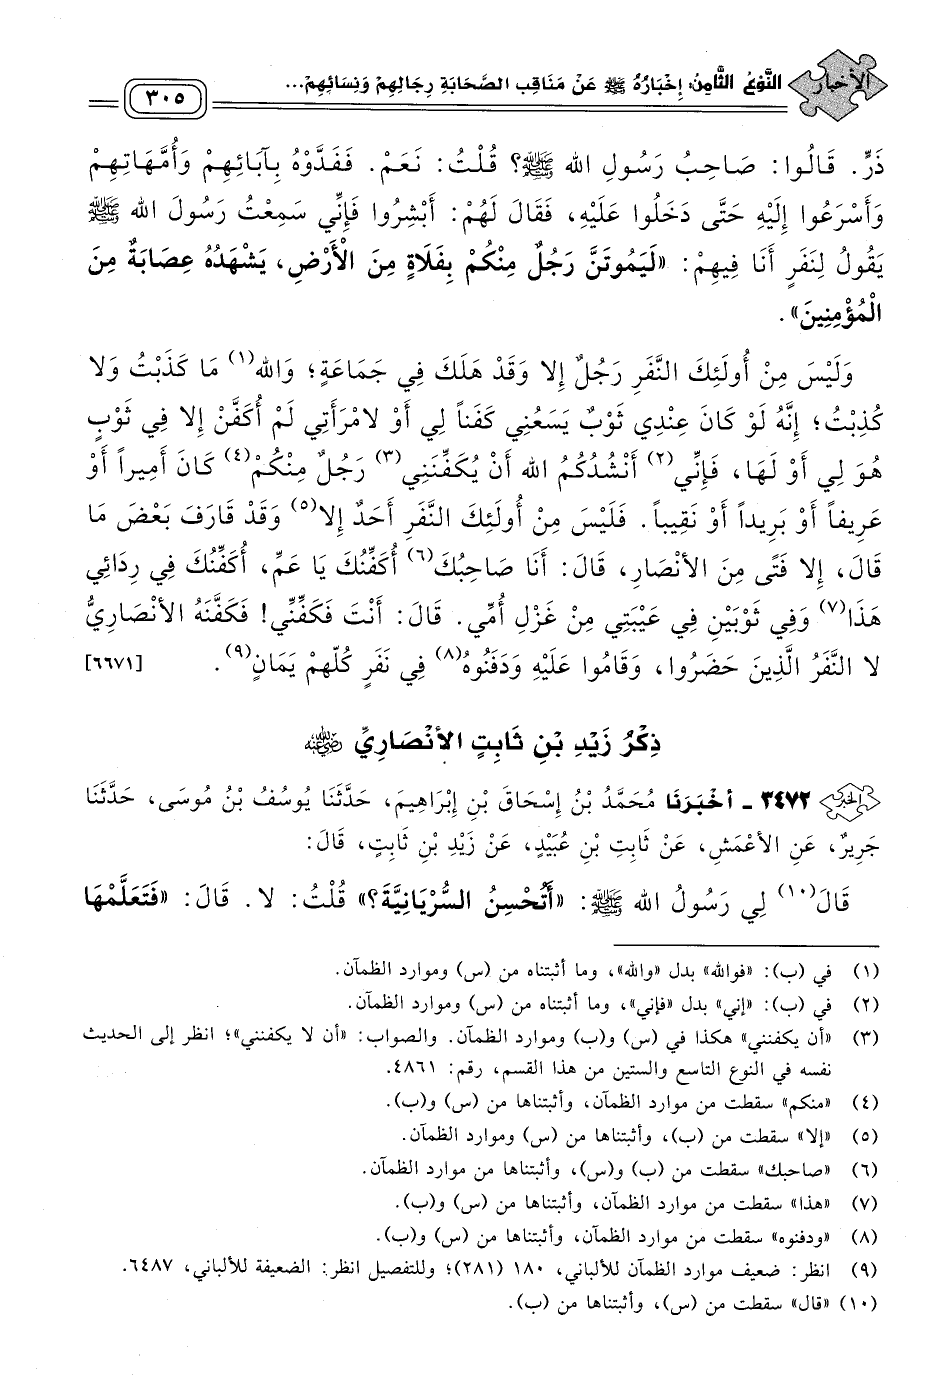 الأخبار
النَّوْعُ الثَّامِنُ: إِخْبَارُهُ ﷺ عَنْ مَنَاقِبِ الصَّحَابَةِ رِجَالِهِمْ وَنِسَائِهِمْ...
٣٠٥
ذَرٍّ. قَالُوا: صَاحِبُ رَسُولِ الله ﷺ؟ قُلْتُ: نَعَمْ. فَفَدَّوْهُ بِآبَائِهِمْ وَأُمَّهَاتِهِمْ
وَأَسْرَعُوا إِلَيْهِ حَتَّى دَخَلُوا عَلَيْهِ، فَقَالَ لَهُمْ: أَبْشِرُوا فَإِنِّي سَمِعْتُ رَسُولَ الله ﷺ
يَقُولُ لِنَفَرٍ أَنَا فِيهِمْ: «لَيَمُوتَنَّ رَجُلٌ مِنْكُمْ بِفَلَاةٍ مِنَ الْأَرْضِ، يَشْهَدُهُ عِصَابَةٌ مِنَ
الْمُؤْمِنِينَ».
وَلَيْسَ مِنْ أُولَئِكَ النَّفَرِ رَجُلٌ إِلا وَقَدْ هَلَكَ فِي جَمَاعَةٍ؛ وَالله(١) مَا كَذَبْتُ وَلا
كُذِبْتُ؛ إِنَّهُ لَوْ كَانَ عِنْدِي ثَوْبٌ يَسَعُنِي كَفَناً لِي أَوْ لامْرَأَتِي لَمْ أُكَفَّنْ إِلا فِي ثَوْبٍ
هُوَ لِي أَوْ لَهَا، فَإِنِّي(٢) أَنْشُدُكُمُ الله أَنْ يُكَفِّنَنِي(٣) رَجُلٌ مِنْكُمْ(٤) كَانَ أَمِيراً أَوْ
عَرِيفاً أَوْ بَرِيداً أَوْ نَقِيباً. فَلَيْسَ مِنْ أُولَئِكَ النَّفَرِ أَحَدٌ إِلا(٥) وَقَدْ قَارَفَ بَعْضَ مَا
قَالَ، إِلا فَتًى مِنَ الأَنْصَارِ، قَالَ: أَنَا صَاحِبُكَ(٦) أُكَفِّنُكَ يَا عَمِّ، أُكَفِّنُكَ فِي رِدَائِي
هَذَا(٧) وَفِي ثَوْبَيْنِ فِي عَيْبَتِي مِنْ غَزْلِ أُمِّي. قَالَ: أَنْتَ فَكَفِّنِّي! فَكَفَّنَهُ الأَنْصَارِيُّ
لا النَّفَرُ الَّذِينَ حَضَرُوا، وَقَامُوا عَلَيْهِ وَدَفَنُوهُ(٨) فِي نَفَرٍ كُلّهِمْ يَمَانٍ(٩). [٦٦٧١]
ذِكْرُ زَيْدِ بْنِ ثَابِتٍ الأَنْصَارِيِّ رضي الله عنه
الخبر ٣٤٧٢ - أخْبَرَنَا مُحَمَّدُ بْنُ إِسْحَاقَ بْنِ إِبْرَاهِيمَ، حَدَّثَنَا يُوسُفُ بْنُ مُوسَى، حَدَّثَنَا
جَرِيرٌ، عَنِ الأَعْمَشِ، عَنْ ثَابِتِ بْنِ عُبَيْدٍ، عَنْ زَيْدِ بْنِ ثَابِتٍ، قَالَ:
قَالَ(١٠) لِي رَسُولُ الله ﷺ: «أَتُحْسِنُ السُّرْيَانِيَّةَ؟» قُلْتُ: لا. قَالَ: «فَتَعَلَّمْهَا
(١) في (ب): «فوالله» بدل «والله»، وما أثبتناه من (س) وموارد الظمآن.
(٢) في (ب): «إني» بدل «فإني»، وما أثبتناه من (س) وموارد الظمآن.
(٣) «أن يكفنني» هكذا في (س) و(ب) وموارد الظمآن. والصواب: «أن لا يكفنني»؛ انظر إلى الحديث
نفسه في النوع التاسع والستين من هذا القسم، رقم: ٤٨٦١.
(٤) «منكم» سقطت من موارد الظمآن، وأثبتناها من (س) و(ب).
(٥) «إلا» سقطت من (ب)، وأثبتناها من (س) وموارد الظمآن.
(٦) «صاحبك» سقطت من (ب) و(س)، وأثبتناها من موارد الظمآن.
(٧) «هذا» سقطت من موارد الظمآن، وأثبتناها من (س) و(ب).
(٨) «ودفنوه» سقطت من موارد الظمآن، وأثبتناها من (س) و(ب).
(٩) انظر: ضعيف موارد الظمآن للألباني، ١٨٠ (٢٨١)؛ وللتفصيل انظر: الضعيفة للألباني، ٦٤٨٧.
(١٠) «قال» سقطت من (س)، وأثبتناها من (ب).